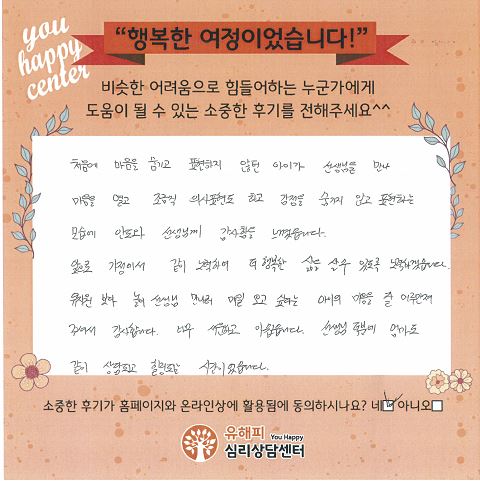 you
happy
center
“행복한 여정이었습니다!”
비슷한 어려움으로 힘들어하는 누군가에게
도움이 될 수 있는 소중한 후기를 전해주세요^^
처음에 마음을 숨기고 표현하지 않던 아이가 선생님을 만나
마음을 열고 조금씩 의사표현도 하고 감정을 숨기지 않고 표현하는
모습에 안도와 선생님께 감사함을 느꼈습니다.
앞으로 가정에서 같이 노력하여 더 행복한 삶을 살 수 있도록 노력하겠습니다.
유치원 보다 놀이 선생님 만나러 매일 오고 싶다는 아이의 마음을 잘 어루만져
주셔서 감사합니다. 너무 아쉽습니다. 선생님 덕분에 엄마도
같이 성장하고 힐링되는 시간이었습니다.
소중한 후기가 홈페이지와 온라인상에 활용됨에 동의하시나요? 네 아니오
유해피 You Happy
심리상담센터